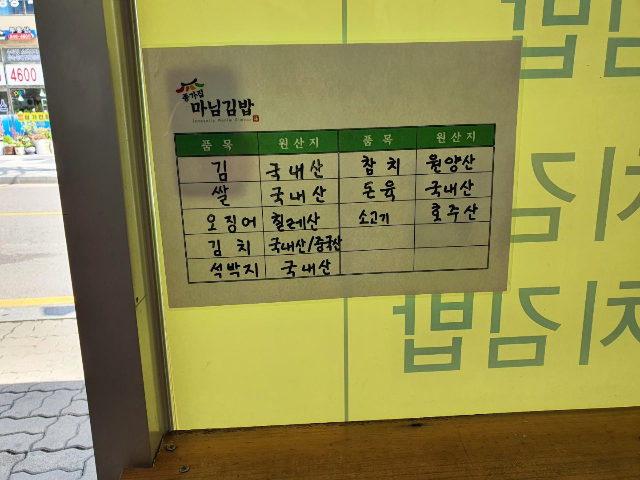 4600
종가집
마님김밥
품 목 원 산 지 품 목 원 산 지
김 국내산 참 치 원양산
쌀 국내산 돈 육 국내산
오징어 칠레산 소고기 호주산
김 치 국내산/중국산
석박지 국내산
김밥
김
치김밥